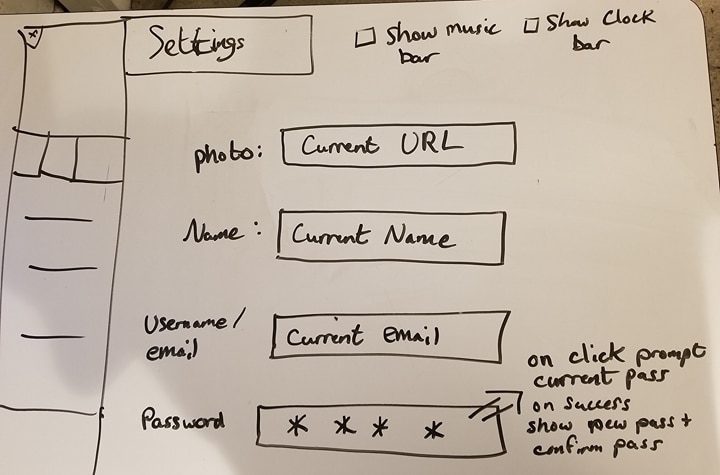 x
Settings
Show music
bar
Show Clock
bar
photo: Current URL
Name: Current Name
Username/
email
Current email
Password * * * *
on click prompt
current pass
on success
show new pass +
confirm pass